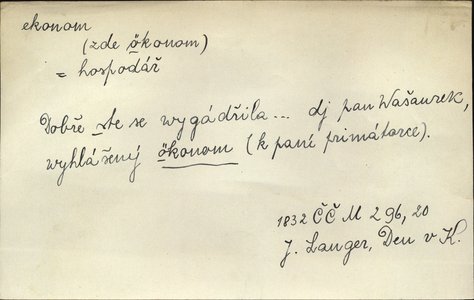 ekonom
(zde ökonom)
= hospodář
Dobře ste se vygádřila... dj pan Wašaurek,
vyhlášený ökonom (k paní primátorce).
1832 ČČM 2 96, 20
J. Langer, Den v K.